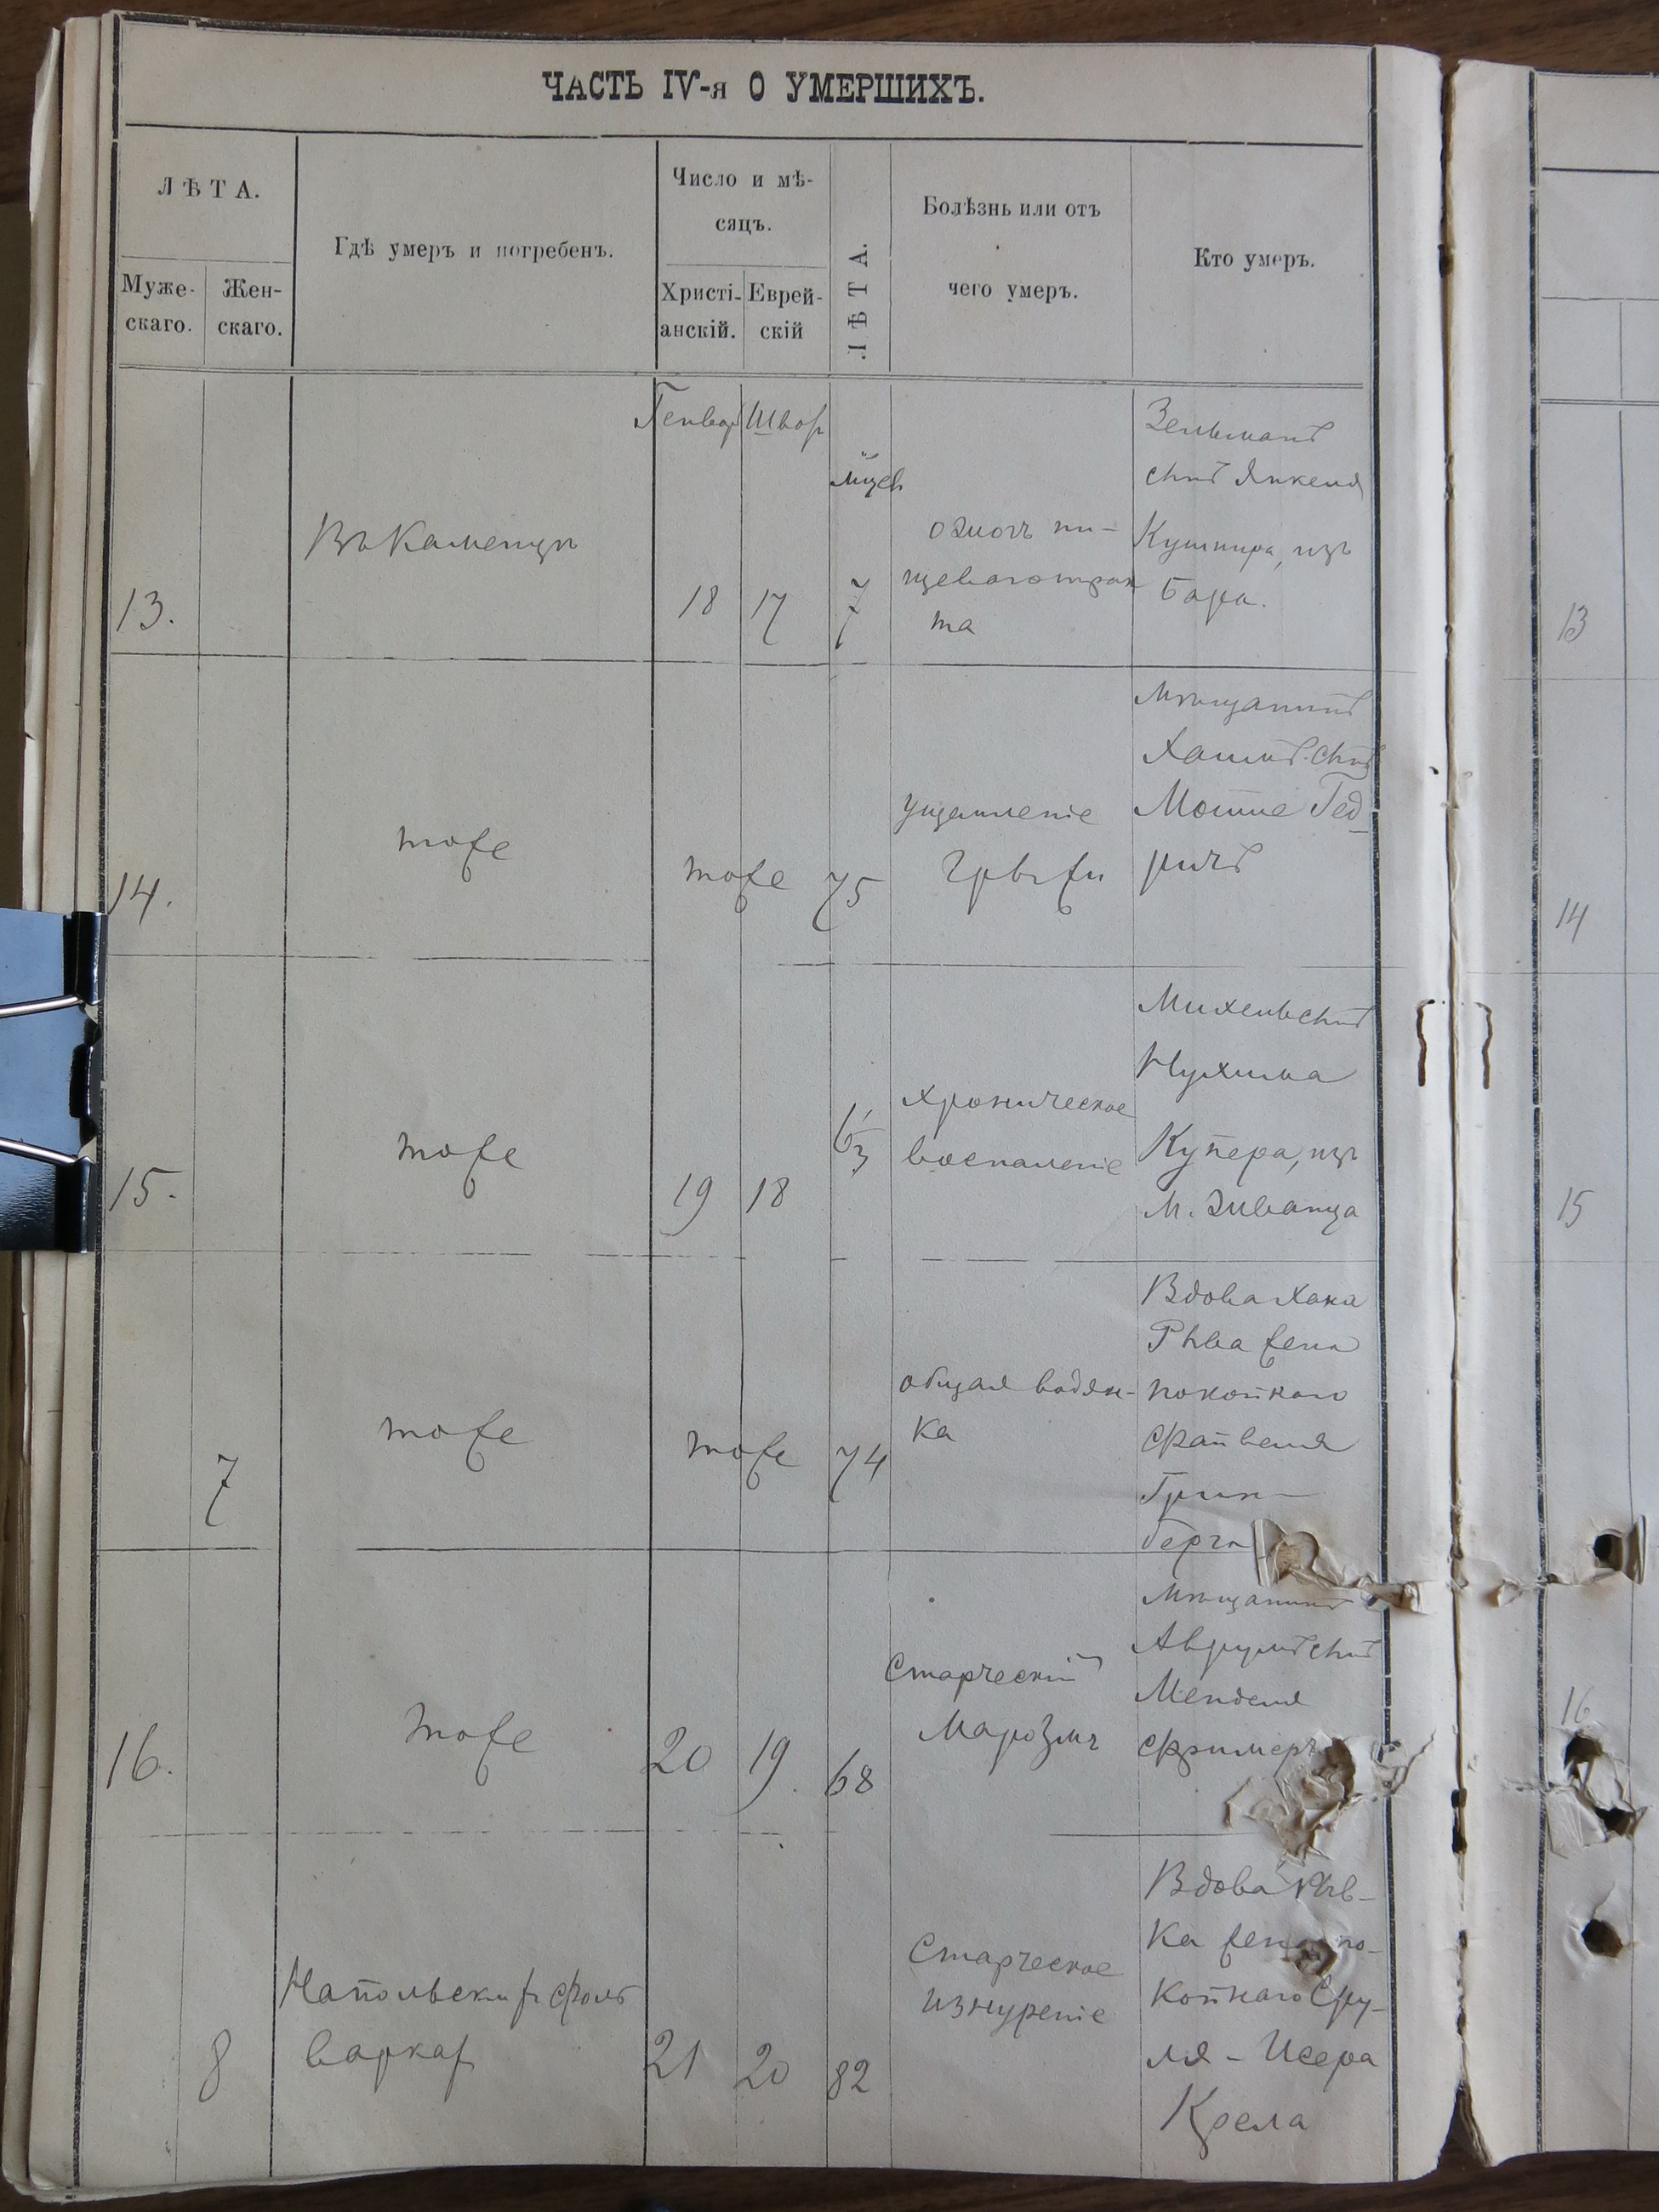 ЧАСТЬ IV-я О УМЕРШИХЪ.
ЛѢТА.
Муже-
скаго.
Жен-
скаго.
Гдѣ умеръ и погребенъ.
Число и мѣ-
сяцъ.
Христі-
анскій.
Еврей-
скій
ЛѢТА.
Болѣзнь или отъ
чего умеръ.
Кто умеръ.
Генвар
Шват
13.
Въ Каменцѣ
18
17
7
пи-
щеваго трак
та
Зельманъ
сынъ Янкеля
Кушнира, изъ
Бара.
13
14.
тоже
тоже
75
ущемленіе
грыжи
Мѣщанинъ
Хаимъ сынъ
Мошие Гед-
ричъ
14
15.
тоже
19
18
63
хроническое
воспаленіе
Михель сынъ
Нухима
Купера, изъ
м. Жванца
15
7
тоже
тоже
74
общая водян-
ка
Вдова Хана
Рыва жена
покойнаго
Файвеля
Грин-
берга
16.
тоже
20
19
68
Старческій
маразмъ
Мѣщанинъ
Аврумъ сынъ
Менделя
Фримеръ
16
8
Напольскихъ фоль
варках
21
20
82
Старческое
изнуреніе
Вдова Рыв-
ка жена по-
койнаго Сру-
ля-Исера
Крела